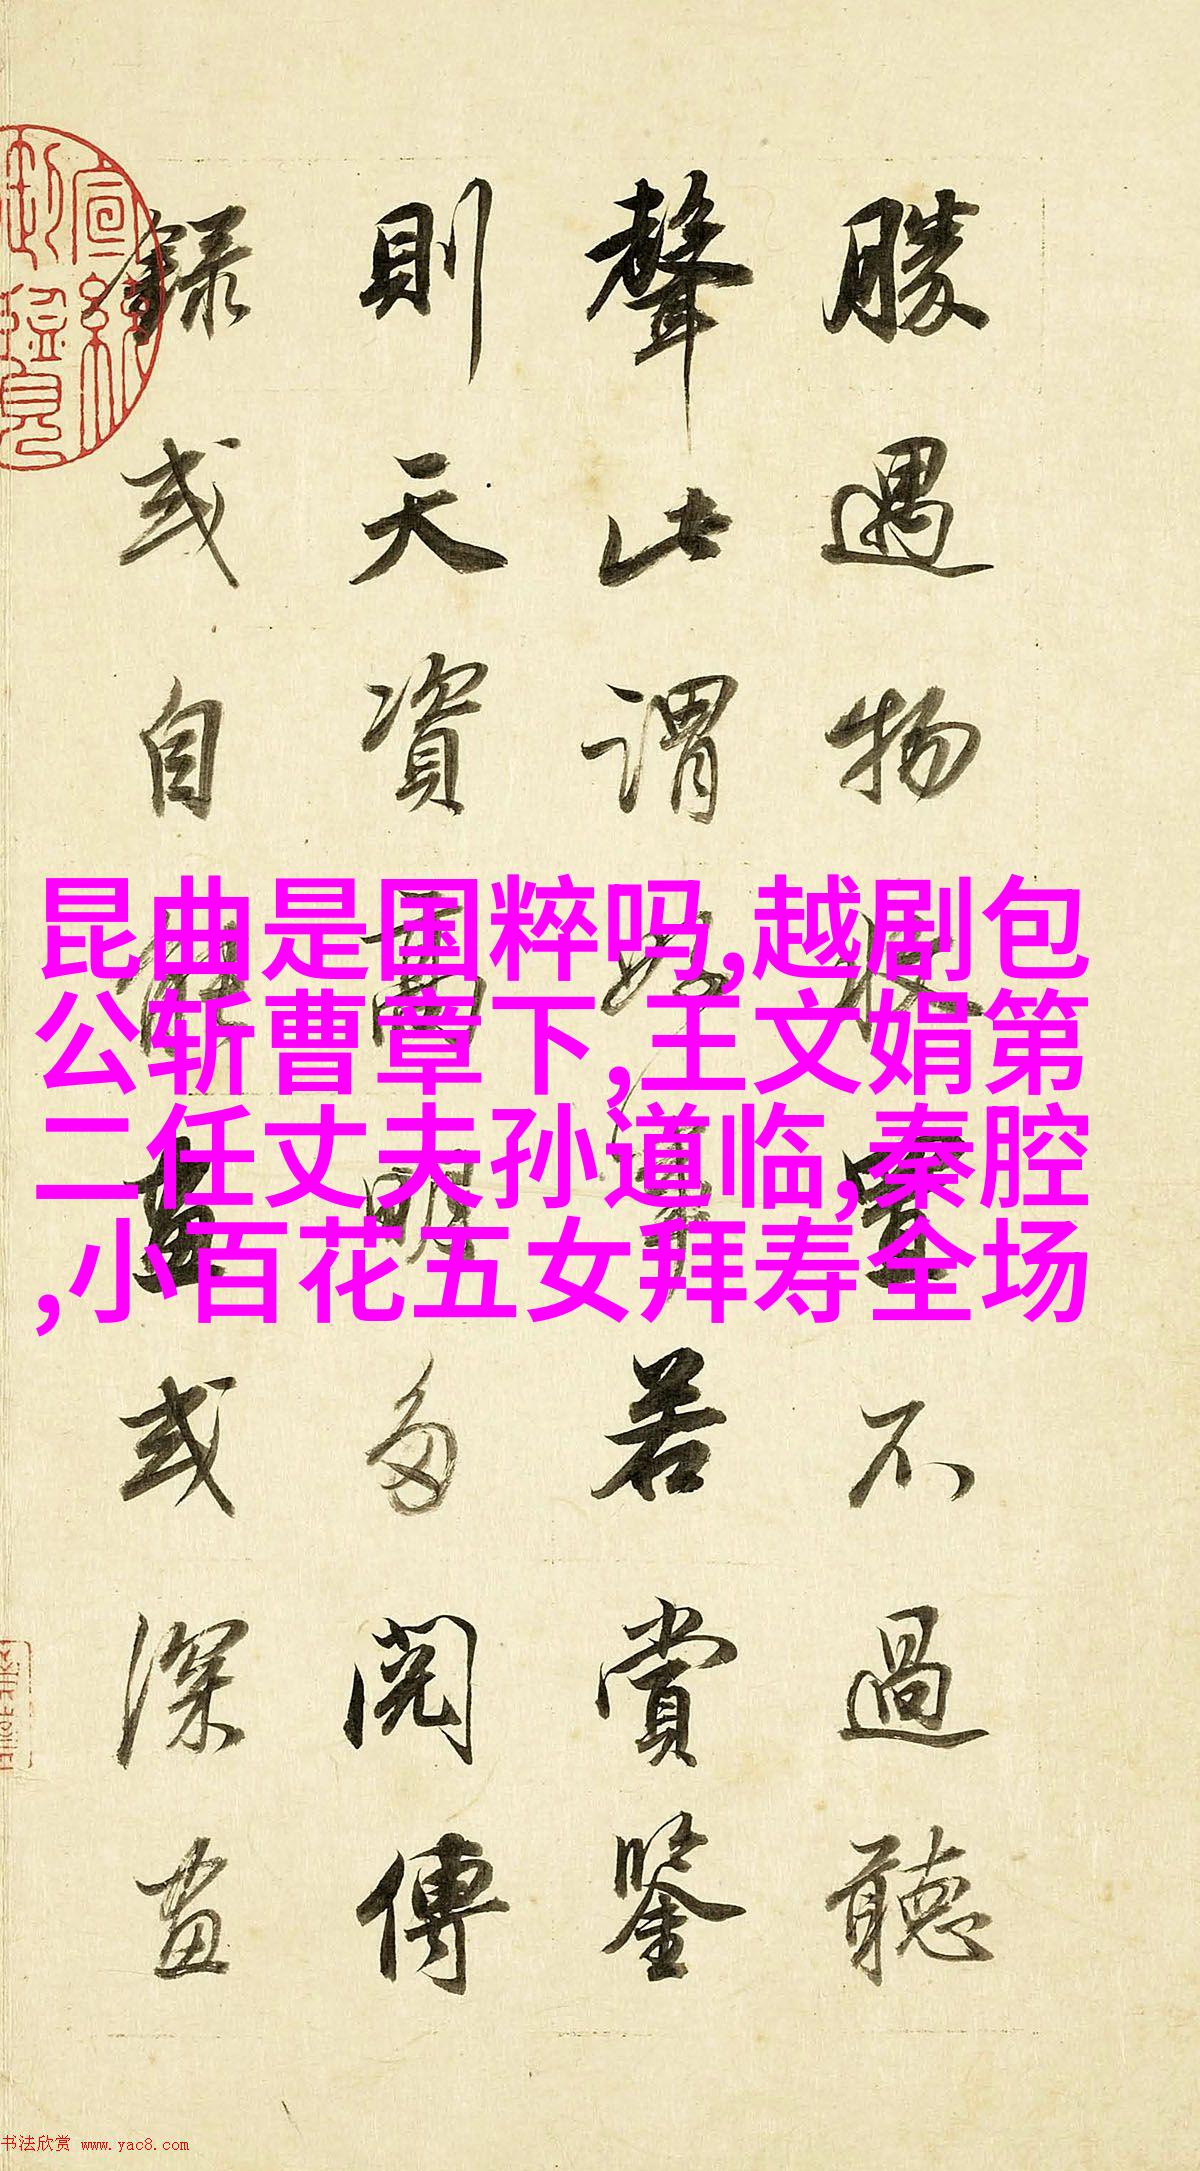 勝遇物收置不過聽
聲此謂好事若賞鑒
則天資高明多閱傳
錄或自能畫或深畫
昆曲是国粹吗,越剧包
公斩曹章下,王文娟第
二任丈夫孙道临,秦腔
,小百花五女拜寿全场
书法欣赏 www.yac8.com